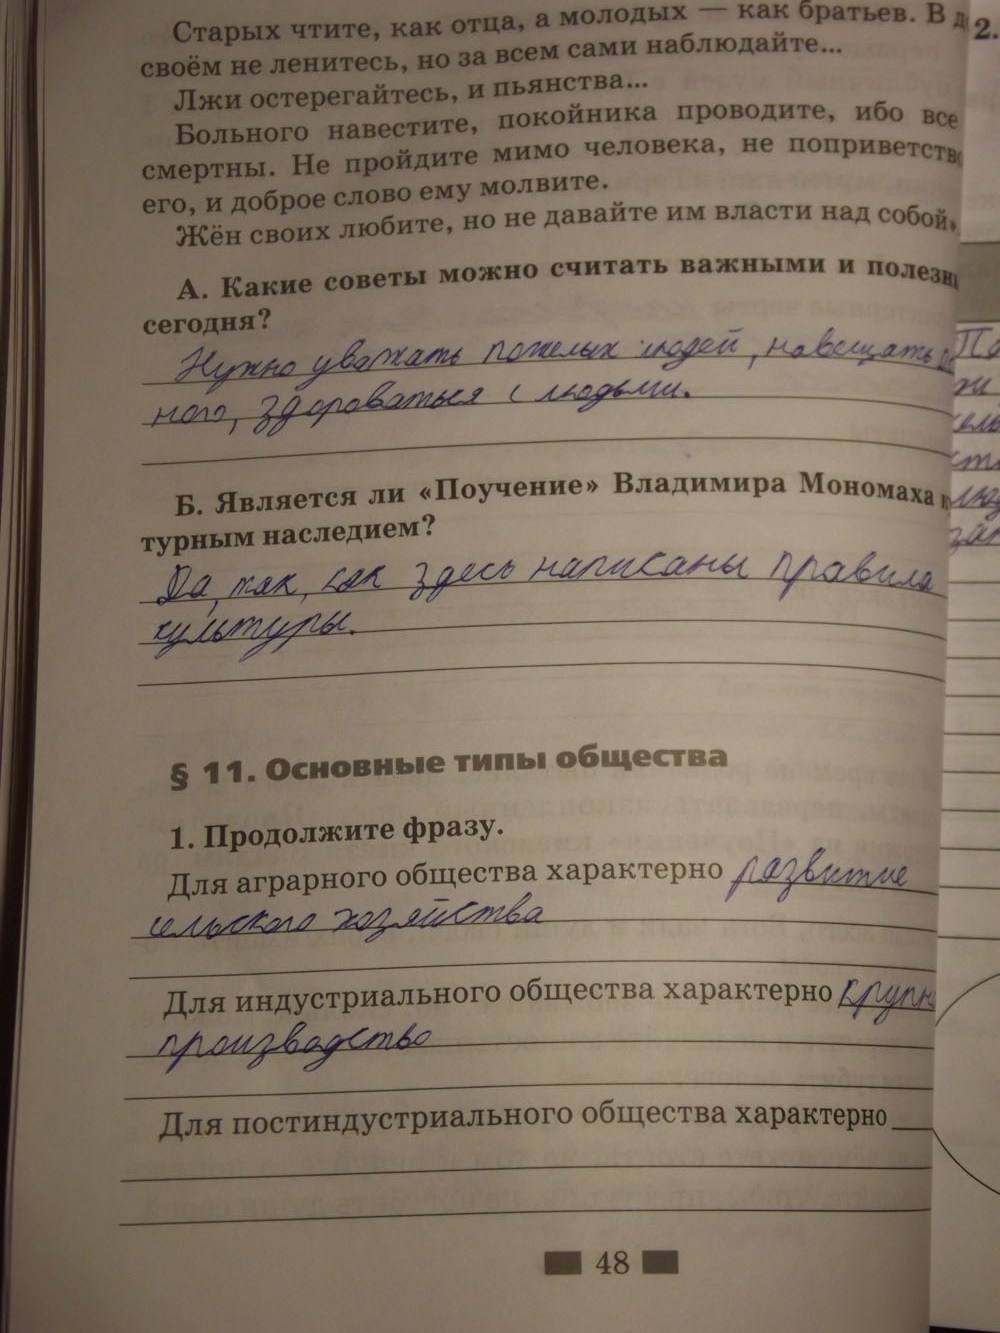 Старых чтите, как отца, а молодых — как братьев. В
своём не ленитесь, но за всем сами наблюдайте...
Лжи остерегайтесь, и пьянства...
Больного навестите, покойника проводите, ибо все
смертны. Не пройдите мимо человека, не поприветство
его, и доброе слово ему молвите.
Жён своих любите, но не давайте им власти над собой.
А. Какие советы можно считать важными и полезн
сегодня?
Нужно уважать пожелых людей, навещать
ного, здороваться с людьми.
Б. Является ли «Поучение» Владимира Мономаха
турным наследием?
Да, так, как здесь написаны правила
культуры.
§ 11. Основные типы общества
1. Продолжите фразу.
Для аграрного общества характерно развитие
сельского хозяйства
Для индустриального общества характерно крупн
производство
Для постиндустриального общества характерно
48
2.